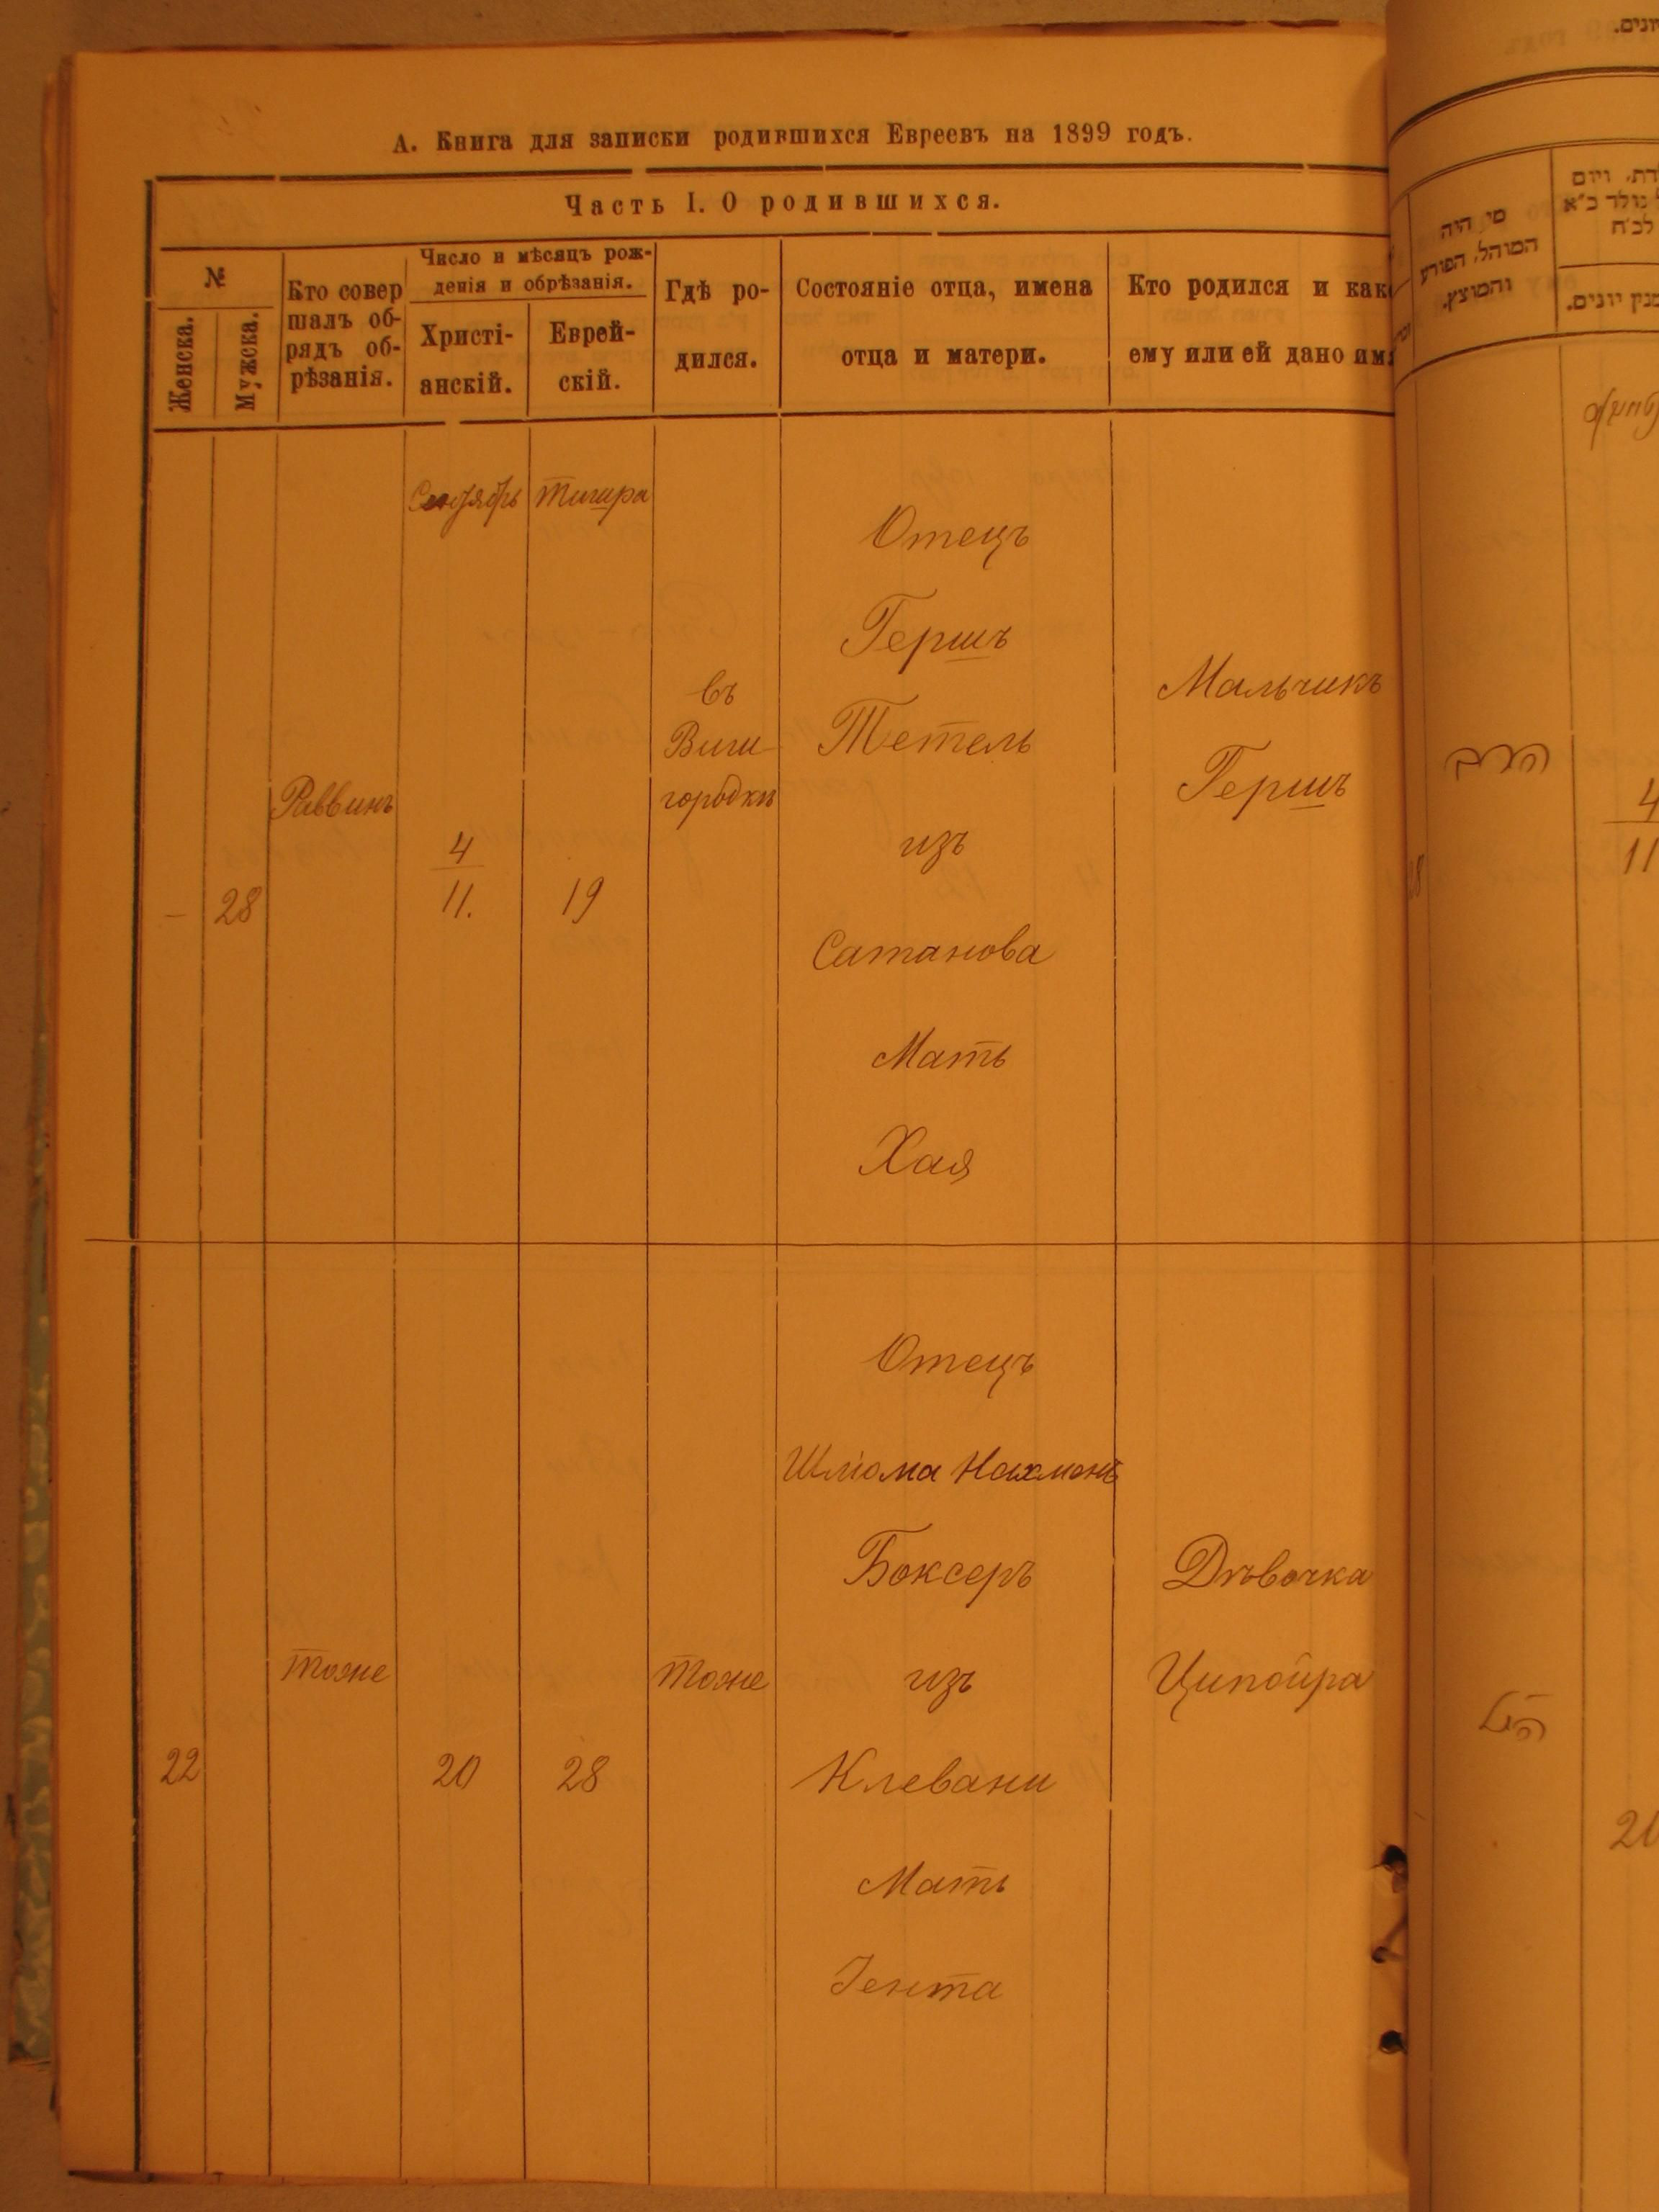 А. Книга для записки родившихся Евреевъ на 1899 годъ.
Часть I. О родившихся.
№
Женска.
Мужска.
Кто совер
шалъ об-
рядъ об-
рѣзанія.
Число и мѣсяцъ рож-
денія и обрѣзанія.
Христі-
анскій.
Еврей-
скій.
Гдѣ ро-
дился.
Состояніе отца, имена
отца и матери.
Кто родился и как
ему или ей дано имя
Сентябрь
Тишра
–
28
Раввинъ
4
11.
19
въ
Виш-
городкѣ
Отецъ
Гершъ
Тетель
изъ
Сатанова
Мать
Хая
Мальчикъ
Гершъ
22
тоже
20
28
тоже
Отецъ
Шліома Нахманъ
Боксеръ
изъ
Клевани
Мать
Іента
Дѣвочка
Ципойра
מי היה
המוהל, הפורע
והמוצץ.
דת, ויום
נולד ב"א
לכ"ח
מנין יונים.
יונים.
הרב
4
11
28
הנ"ל